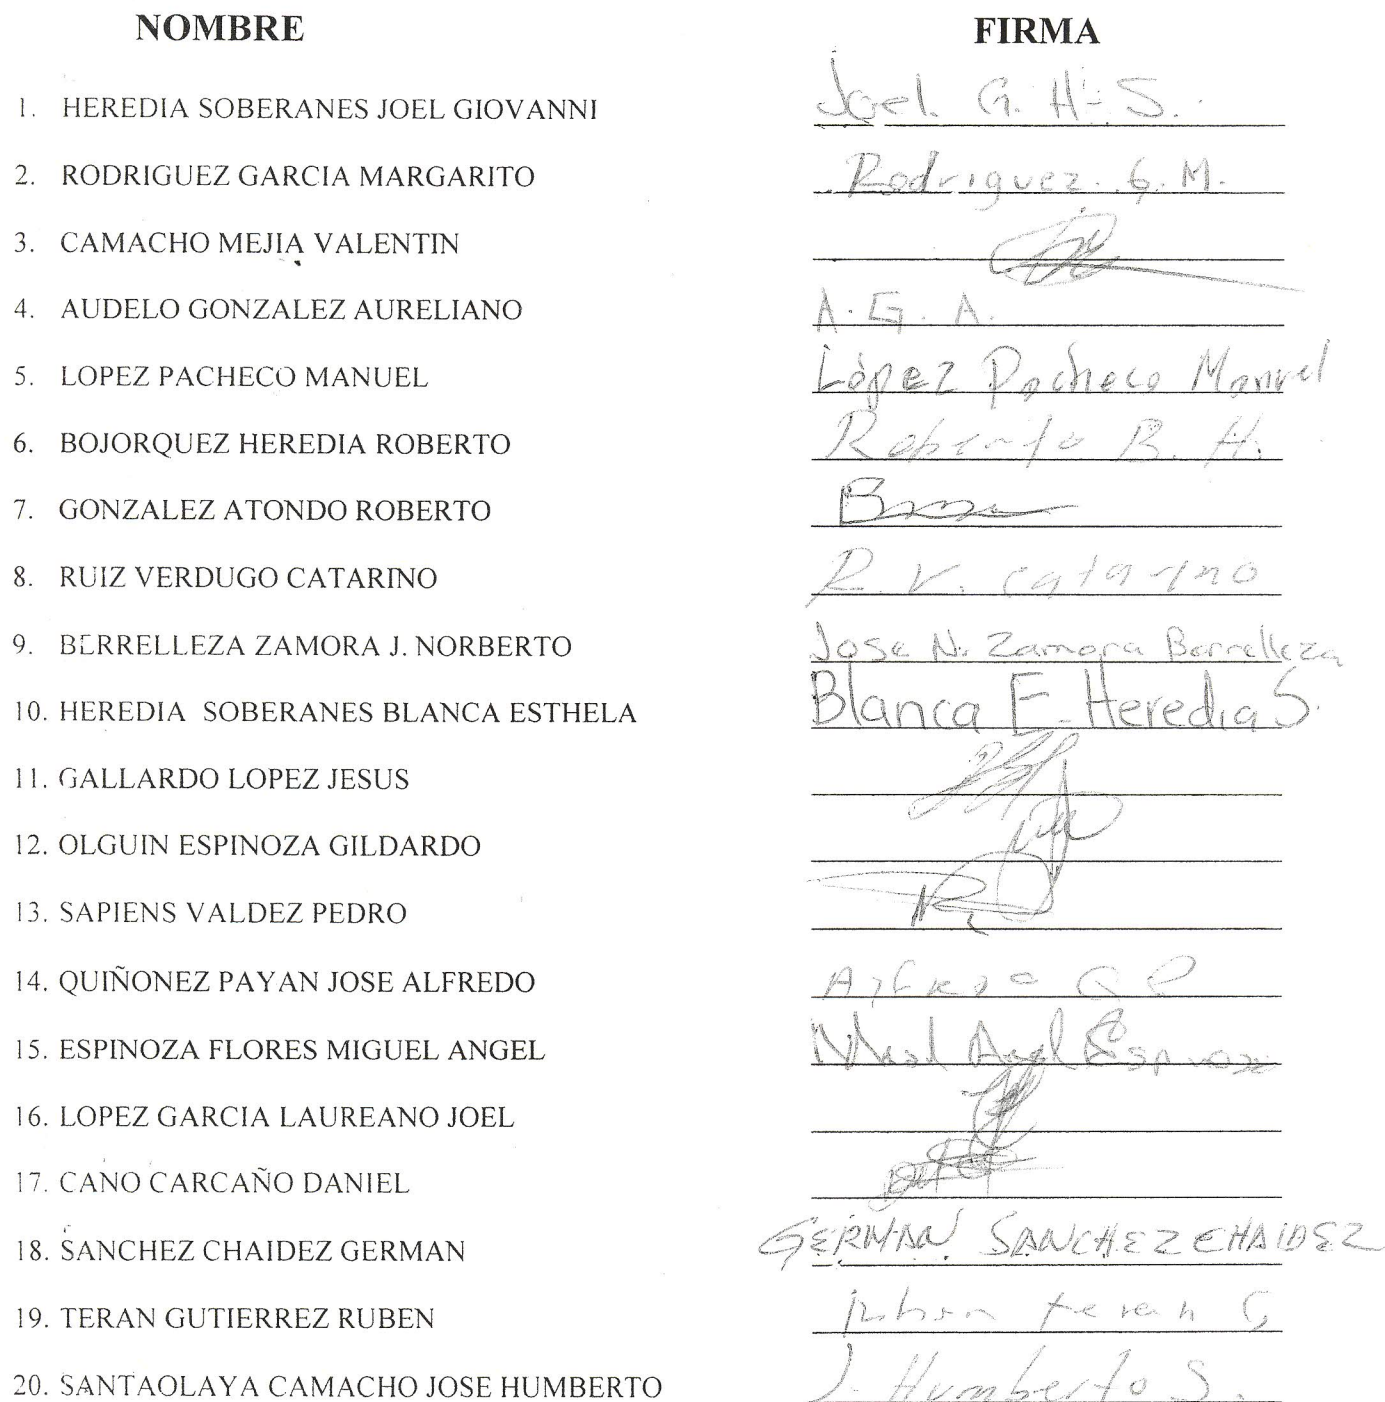 NOMBRE FIRMA
1. HEREDIA SOBERANES JOEL GIOVANNI Joel G. H. S.
2. RODRIGUEZ GARCIA MARGARITO Rodriguez. G. M.
3. CAMACHO MEJIA VALENTIN
4. AUDELO GONZALEZ AURELIANO A. G. A.
5. LOPEZ PACHECO MANUEL López Pacheco Manuel
6. BOJORQUEZ HEREDIA ROBERTO Roberto B. H.
7. GONZALEZ ATONDO ROBERTO
8. RUIZ VERDUGO CATARINO R. V. catarino
9. BERRELLEZA ZAMORA J. NORBERTO Jose N. Zamora Berrelleza
10. HEREDIA SOBERANES BLANCA ESTHELA Blanca E. Heredia S.
11. GALLARDO LOPEZ JESUS
12. OLGUIN ESPINOZA GILDARDO
13. SAPIENS VALDEZ PEDRO
14. QUIÑONEZ PAYAN JOSE ALFREDO
15. ESPINOZA FLORES MIGUEL ANGEL
16. LOPEZ GARCIA LAUREANO JOEL
17. CANO CARCAÑO DANIEL
18. SANCHEZ CHAIDEZ GERMAN GERMAN SANCHEZ CHAIDEZ
19. TERAN GUTIERREZ RUBEN teran G
20. SANTAOLAYA CAMACHO JOSE HUMBERTO J. Humberto S.